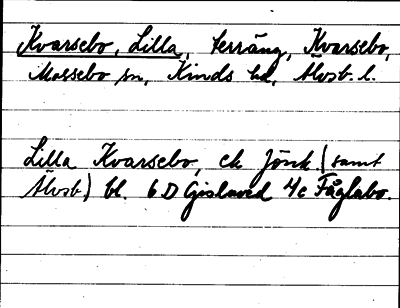 Kvarsebo, Lilla, terräng, Kvarsebo,
Mossebo sn, Kinds hd, Älvsb. l.
Lilla Kvarsebo, ek Jönk (samt
Älvsb) bl. 6D Gislaved 4c Fåglabo.